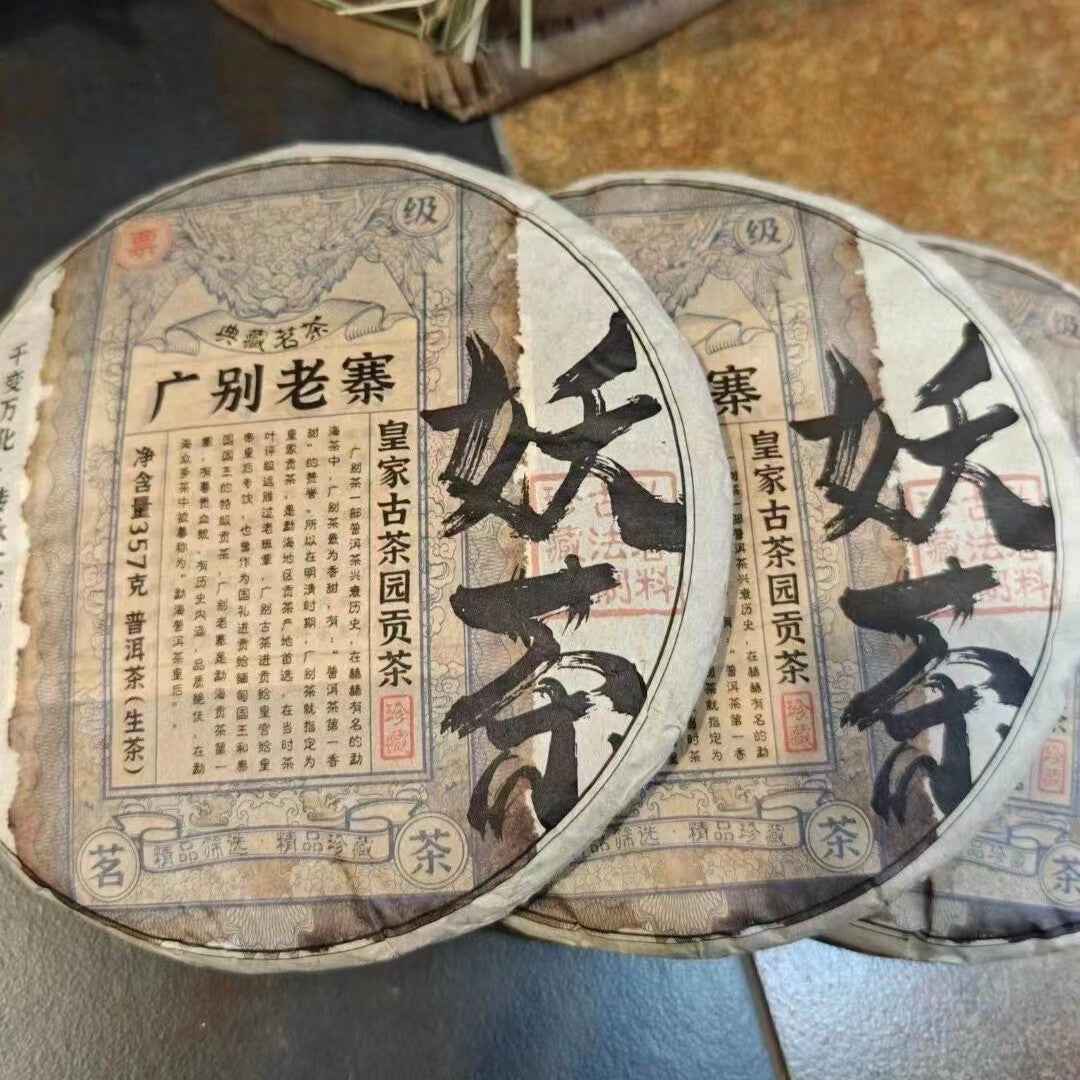 票
级
典藏茗茶
广别老寨
皇家古茶园贡茶
珍藏
广别茶一部普洱茶兴衰历史，在赫赫有名的勐
海茶中，广别茶最为香甜，有：“普洱茶第一香
甜”的赞誉。所以在明清时期，广别茶就指定为
皇家贡茶，是勐海地区贡茶产地首选。在当时茶
叶评级远胜过老班章，广别古茶进贡给皇宫给皇
帝皇后专饮，也曾作为国礼进贡给缅甸国王和泰
国国王的特级贡茶，广别老寨是勐海贡茶第一
寨，有着贵血统，有历史内涵，品质绝佳，在勐
海众多茶中被尊称为“勐海普洱茶皇后”。
净含量357克 普洱茶（生茶）
千变万化
妖茶
茗
精品筛选·精品珍藏
茶
级
寨
皇家古茶园贡茶
珍藏
妖茶
古法
藏
制料
精品珍藏
茶
级
茶
品珍藏
茶